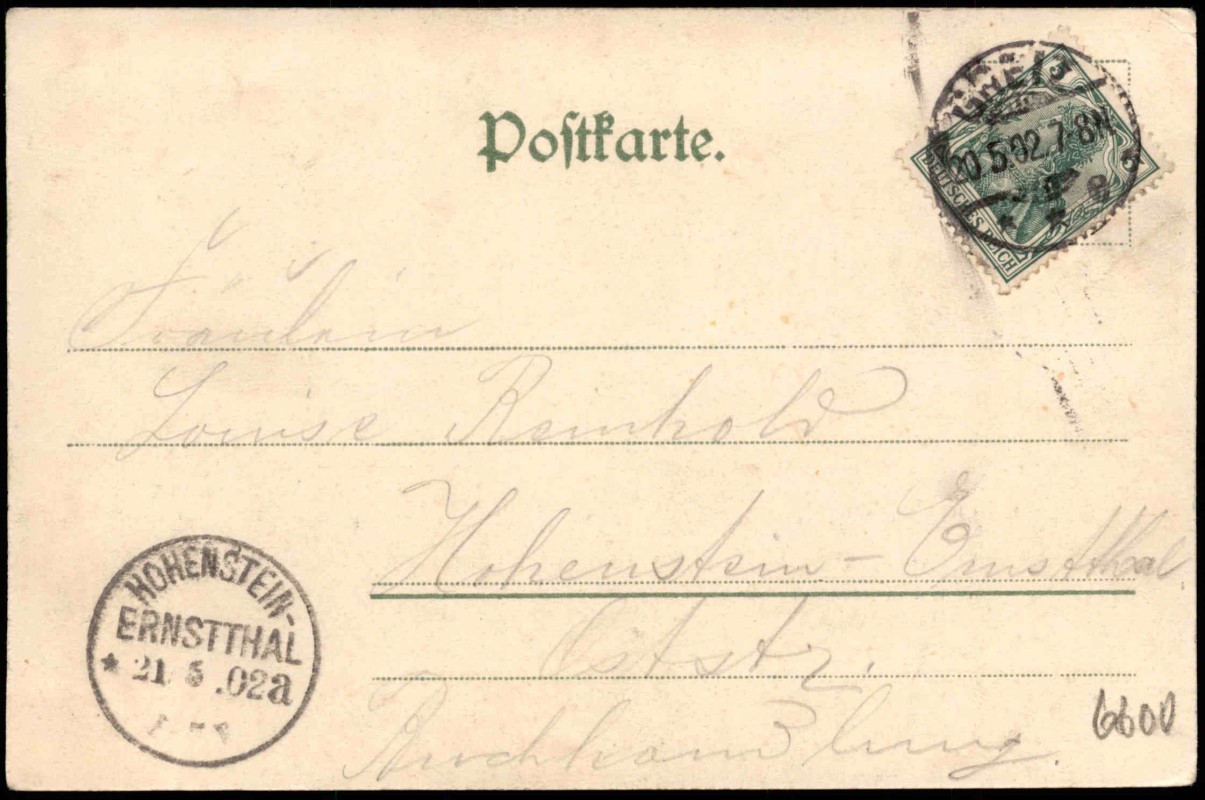 Postkarte.
GREIZ
20.5.02.7-8N.
DEUTSCHES REICH
Fräulein
Louise Reinhold
Hohenstein-Ernstthal
Oststr.
Buchhandlung.
HOHENSTEIN-
ERNSTTHAL
* 21. 5 .02a
6600